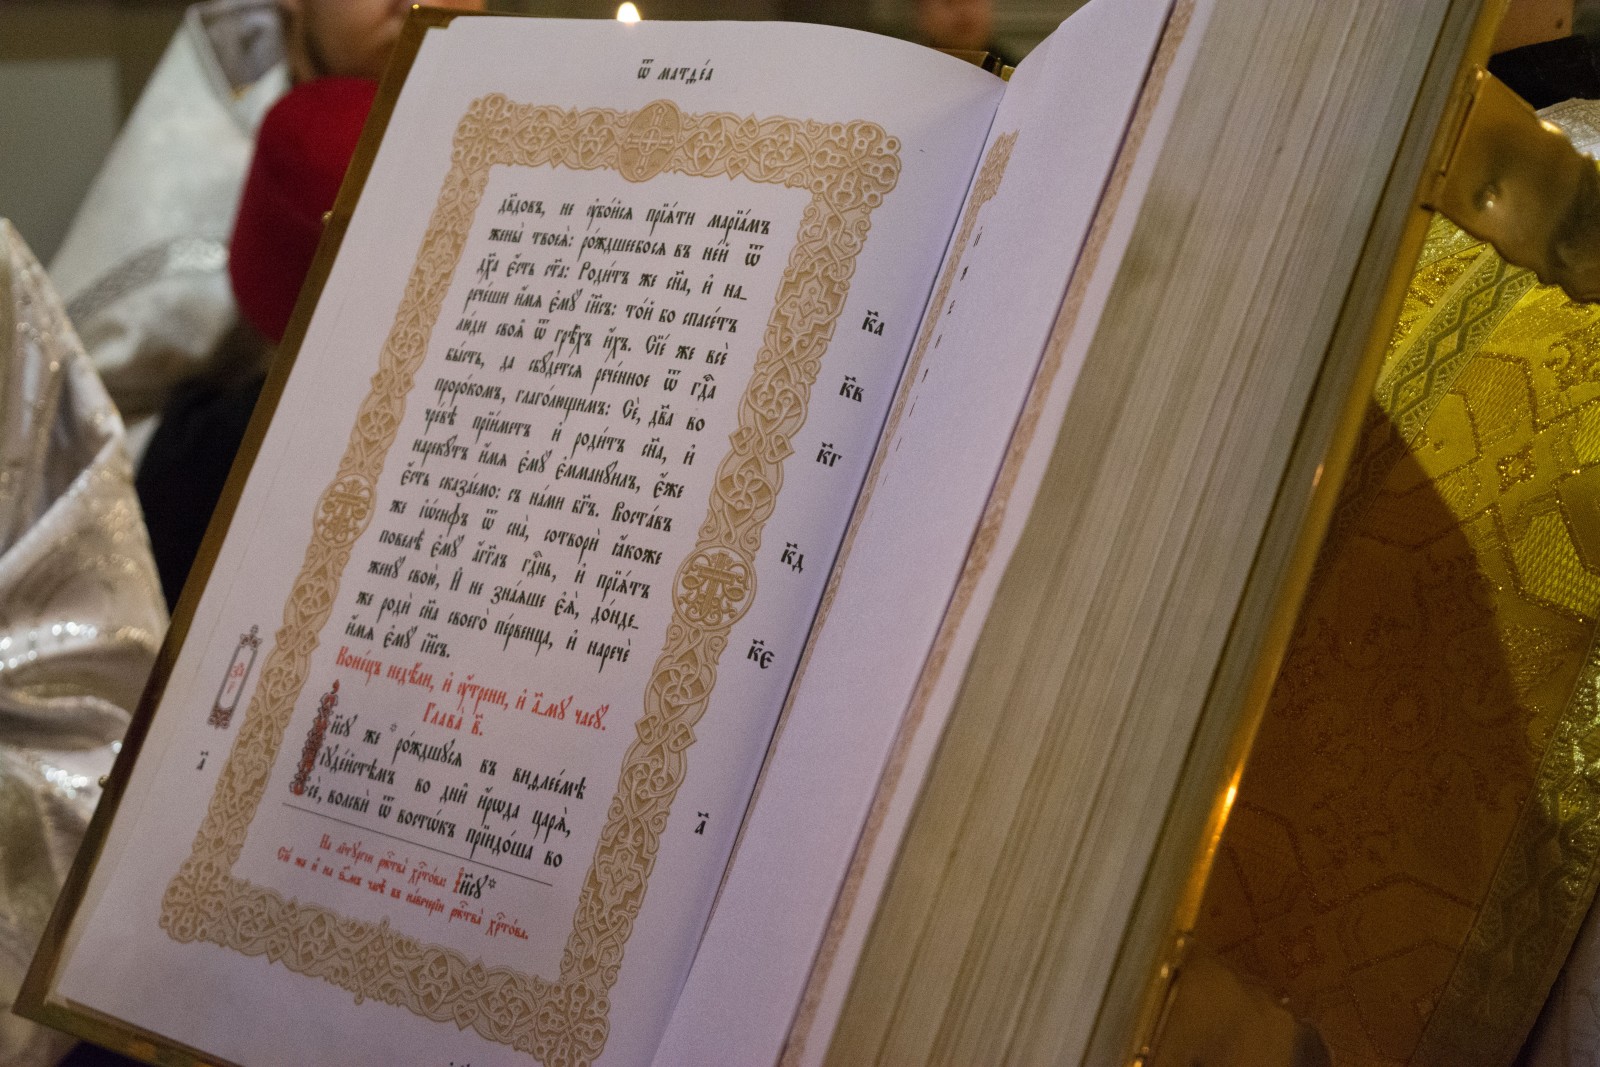 Ѿ матѳе́а
дв҃довъ, не ᲂу҆бо́йсѧ прїѧ́ти марїа́мъ
жены̀ твоеѧ̀: ро́ждшеебосѧ въ не́й ѿ
дх҃а є҆́сть ст҃а: Роди́тъ же сн҃а, и҆ на_
рече́ши и҆́мѧ є҆мꙋ̀ і҆и҃съ: то́й бо спасе́тъ
лю́ди своѧ̑ ѿ грѣ̑хъ и҆́хъ. Сїе́ же всѐ
бы́сть, да сбꙋ́детсѧ рече́нное ѿ гдⷭ҇а
проро́комъ, глаго́лющимъ: Сѐ, дв҃а во
чре́вѣ прїи́метъ и҆ роди́тъ сн҃а, и҆
нарекꙋ́тъ и҆́мѧ є҆мꙋ̀ є҆мманꙋ́илъ, є҆́же
є҆́сть сказа́емо: съ на́ми бг҃ъ. Воста́въ
же і҆ѡ́сифъ ѿ сна̀, сотворѝ ꙗ҆́коже
повелѣ̀ є҆мꙋ̀ а҆́гг҃лъ гдⷭ҇нь, и҆ прїѧ́тъ
женꙋ̀ свою̀, И҆ не зна́ѧше є҆ѧ̀, до́нде_
же родѝ сн҃а своего̀ пе́рвенца, и҆ наречѐ
и҆́мѧ є҆мꙋ̀ і҆и҃съ.
Коне́цъ недѣ́ли, и҆ ᲂу҆́трени, и҆ а҃_мꙋ часꙋ̀.
Глава̀ в҃.
І҆и҃сꙋ же *ро́ждшꙋсѧ въ виѳлее́мѣ
і҆ꙋде́йстѣмъ во дни̑ и҆́рѡда царѧ̀,
сѐ, волсвѝ ѿ востѡ́къ прїидо́ша во
На лїтꙋргі́и ржⷭ҇тва̀ хрⷭ҇то́ва: І҆и҃сꙋ*
Сїе́ же и҆ на а҃_мъ часѣ̀ въ наве́черїи ржⷭ҇тва̀ хрⷭ҇то́ва.
к҃а
к҃в
к҃г
к҃д
к҃є
а҃
а҃